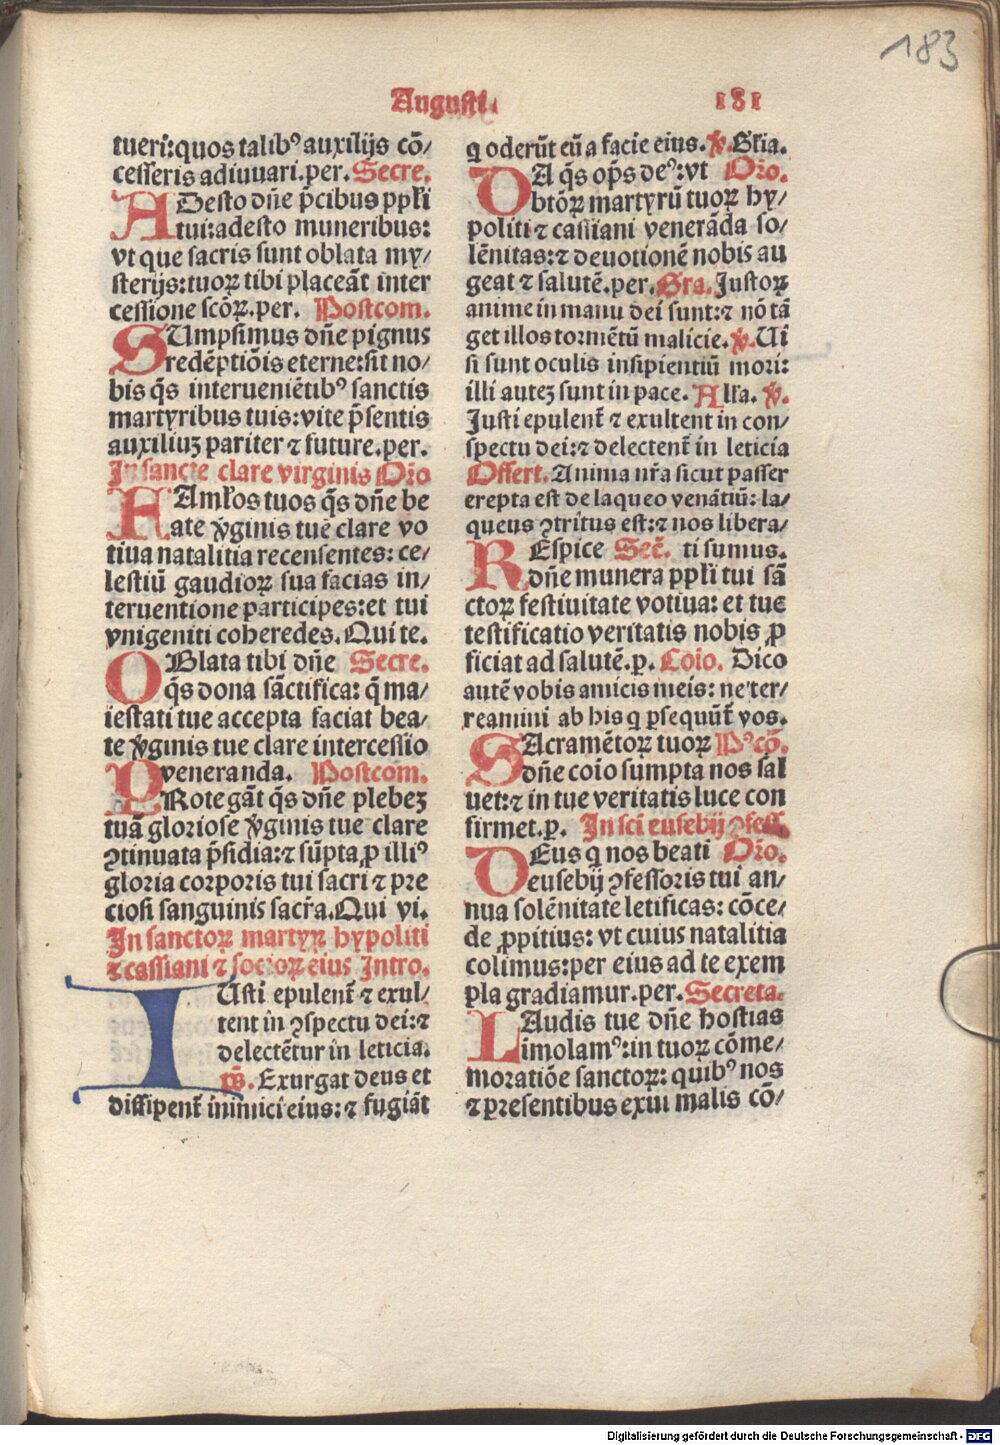 183
Augusti.
181
tueri:quos talibꝰ auxilijs cō/
cesseris adiuuari.per. Secre.
ADesto dn̄e p̄cibus ppl̄i
tui:adesto muneribus:
vt que sacris sunt oblata my/
sterijs:tuoꝝ tibi placeāt inter
cessione scōꝝ.per. Postcom.
SUmpsimus dn̄e pignus
redēptiōis eterne:sit no/
bis q̄s interueniētibꝰ sanctis
martyribus tuis:vite p̄sentis
auxiliuꝫ pariter ⁊ future.per.
In sancte clare virginis Oŕo
FAml̄os tuos q̄s dn̄e be
ate v̄ginis tue clare vo
tiua natalitia recensentes: ce/
lestiū gaudioꝝ sua facias in/
teruentione participes:et tui
vnigeniti coheredes. Qui te.
OBlata tibi dn̄e Secre.
q̄s dona sāctifica: q̄ ma/
iestati tue accepta faciat bea/
te v̄ginis tue clare intercessio
veneranda. Postcom.
PRotegāt q̄s dn̄e plebeꝫ
tuā gloriose v̄ginis tue clare
ꝯtinuata p̄sidia:⁊ sūpta ꝓ illiꝰ
gloria corporis tui sacri ⁊ pre
ciosi sanguinis sacr̄a. Qui vi.
In sanctoꝝ martyꝝ hypoliti
⁊ cassiani ⁊ socioꝝ eius Intro.
IUsti epulent̄ ⁊ exul/
tent in ꝯspectu dei:⁊
delectētur in leticia.
ps̄. Exurgat deus et
dissipent̄ inimici eius:⁊ fugiāt
q oderūt eū a facie eius. v̄. Gl̄ia.
DA q̄s op̄s deꝰ:vt Oŕo.
btōꝝ martyrū tuoꝝ hy/
politi ⁊ cassiani venerāda so/
lēnitas:⁊ deuotionē nobis au
geat ⁊ salutē.per. Gra. Justoꝝ
anime in manu dei sunt:⁊ nō tā
get illos tormētū malicie. v̄. Ui
si sunt oculis insipientiū mori:
illi auteꝫ sunt in pace. All̄a. v̄.
Justi epulent̄ ⁊ exultent in con/
spectu dei:⁊ delectent̄ in leticia
Offert. Anima nr̄a sicut passer
erepta est de laqueo venātiū: la/
queus ꝯtritus est:⁊ nos libera/
REspice Sec̄. ti sumus.
dn̄e munera ppl̄i tui sā
ctoꝝ festiuitate votiua: et tue
testificatio veritatis nobis ꝓ
ficiat ad salutē.p. Coīo. Dico
autē vobis amicis meis: ne ter/
reamini ab his q ꝑsequūt̄ vos.
SAcramētoꝝ tuoꝝ Pꝰcō.
dn̄e coīo sumpta nos sal
uet:⁊ in tue veritatis luce con
firmet.p. In sci eusebij ꝯfess.
DEus q nos beati Oŕo.
eusebij ꝯfessoris tui an/
nua solēnitate letificas: cōce/
de ꝓpitius: vt cuius natalitia
colimus:per eius ad te exem
pla gradiamur.per. Secreta.
LAudis tue dn̄e hostias
imolamꝰ:in tuoꝝ cōme/
moratiōe sanctoꝝ: quibꝰ nos
⁊ presentibus exui malis cō/
Digitalisierung gefördert durch die Deutsche Forschungsgemeinschaft - DFG